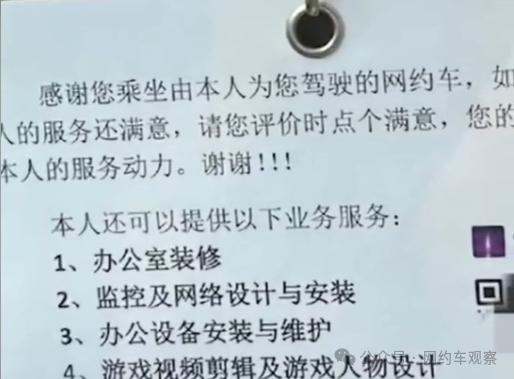 感谢您乘坐由本人为您驾驶的网约车，如
人的服务还满意，请您评价时点个满意，您的
本人的服务动力。谢谢!!!
本人还可以提供以下业务服务：
1、办公室装修
2、监控及网络设计与安装
3、办公设备安装与维护
4、游戏视频剪辑及游戏人物设计
公众号·网约车观察